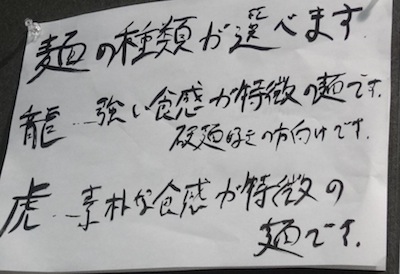 麺の種類が選べます。
龍…強い食感が特徴の麺です。
硬麺好きの方向けです。
虎…素朴な食感が特徴の
麺です。